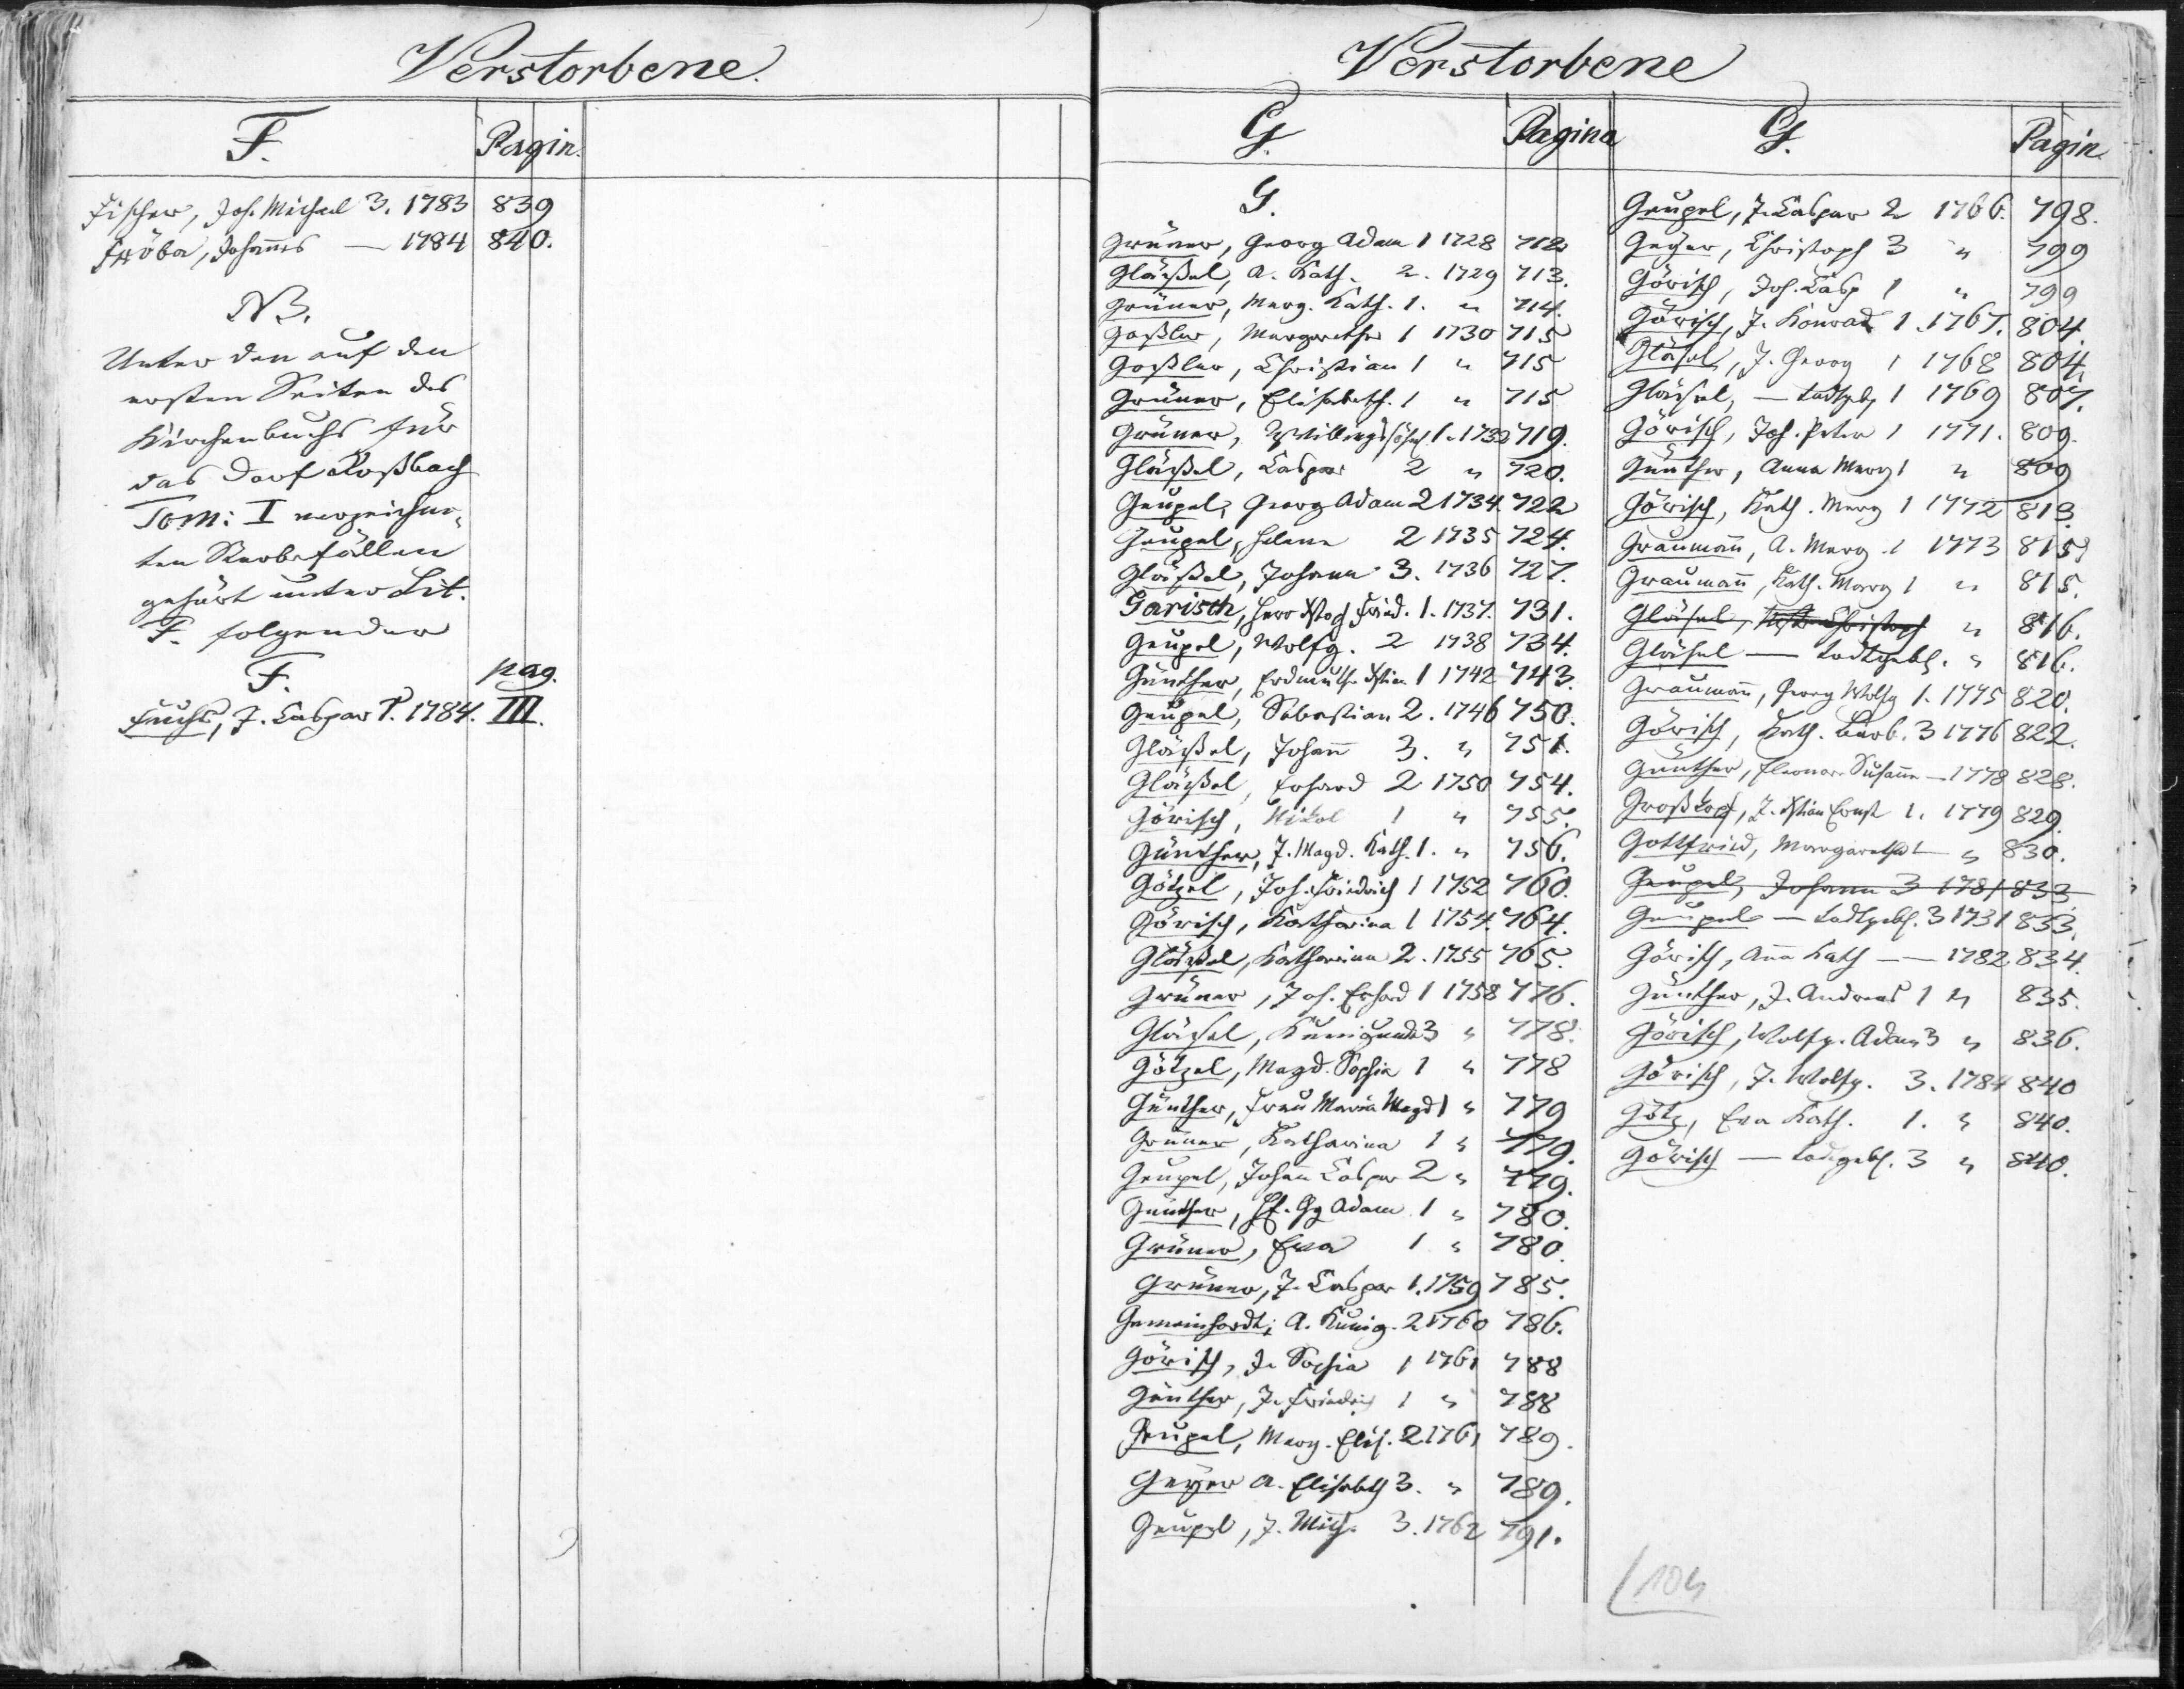 Verstorbene.
F. Pagin.
Fischer, Joh. Michael 3. 1783 839
Fröba, Johannes — 1784 840.
NB.
Unter den auf den
ersten Seiten des
Kirchenbuchs für
das Dorf Roßbach
Tom: I verzeichne-
ten Sterbefällen
gehört unter Lit.
F. folgender
F. pag.
Fuchs, J. Caspar 1. 1784. III.
Verstorbene
G. Pagina
G.
Grüner, Georg Adam 1 1728 712
Gläßel, A. Kath. 2. 1729 713.
Grüner, Marg. Kath. 1. " 714.
Goßler, Margarethe 1 1730 715
Goßler, Christian 1 " 715
Grüner, Elisabeth. 1 " 715
Grüner, Zwillingssöhnch 1. 1732 719.
Gläßel, Caspar 2 " 720.
Geupel, Georg Adam 2 1734. 722
Geupel, Helena 2 1735 724.
Gläßel, Johann 3. 1736 727.
Garisch, Herr Xstoph Fried. 1. 1737. 731.
Geupel, Wolfg. 2 1738 734.
Günther, Erdmuthe Xstian 1 1742 743.
Geupel, Sebastian 2. 1746 750.
Gläßel, Johann 3. " 751.
Gläßel, Erhard 2 1750 754.
Görisch, Nikol 1 " 755.
Günther, J. Magd. Kath. 1. " 756.
Götzel, Joh. Friedrich 1 1752 760.
Görisch, Katharina 1 1754. 764.
Gläßel, Katharina 2. 1755 765.
Grüner, Joh. Erhard 1 1758 776.
Gläsel, Kunigunda 3 " 778.
Götzel, Magd. Sophia 1 " 778
Günther, Frau Maria Magd 1 " 779
Grüner, Katharina 1 " 779.
Geupel, Johann Caspar 2 " 779.
Günther, Gg Adam 1 " 780.
Grüner, Eva 1 " 780.
Grüner, J. Caspar 1. 1759 785.
Gemeinhardt, A. Kunig. 2 1760 786.
Görisch, J. Sophia 1 1761 788
Günther, J. Friedrich 1 " 788
Geupel, Marg. Elis. 2 1761 789.
Geyer A. Elisabeth 3. " 789.
Geupel, J. Mich. 3. 1762 791.
G. Pagin.
Geupel, J. Caspar 2 1766. 798.
Geyer, Christoph 3 " 799
Görisch, Joh. Casp 1 " 799
Görisch, J. Konrad 1. 1767. 804.
Gläsel, J. Georg 1 1768 804.
Gläsel, — todtgeb 1 1769 807.
Görisch, Joh. Peter 1 1771. 809.
Günther, Anna Marg 1 " 809
Görisch, Kath. Marg 1 1772 813.
Graumann, A. Marg. 1 1773 815
Graumann, Kath. Marg 1 " 815.
Gläsel, Christoph " 816.
Gläsel — todtgeb. " 816.
Graumann, Georg Wolfg 1. 1775 820.
Görisch, Kath. Barb. 3 1776 822.
Günther, Eleonore Susanna — 1778 828.
Großkopf, J. Xstian Ernst 1. 1779 829.
Gottfried, Margaretha 1 " 830.
Geupel, Johann 3 1781 833
Geupel — todtgeb. 3 1731 833.
Görisch, Anna Kath — 1782 834.
Günther, J. Andreas 1 " 835.
Görisch, Wolfg. Adam 3 " 836.
Görisch, J. Wolfg. 3. 1784 840
Götz, Eva Kath. 1. " 840.
Görisch — todtgeb. 3 " 840.
104